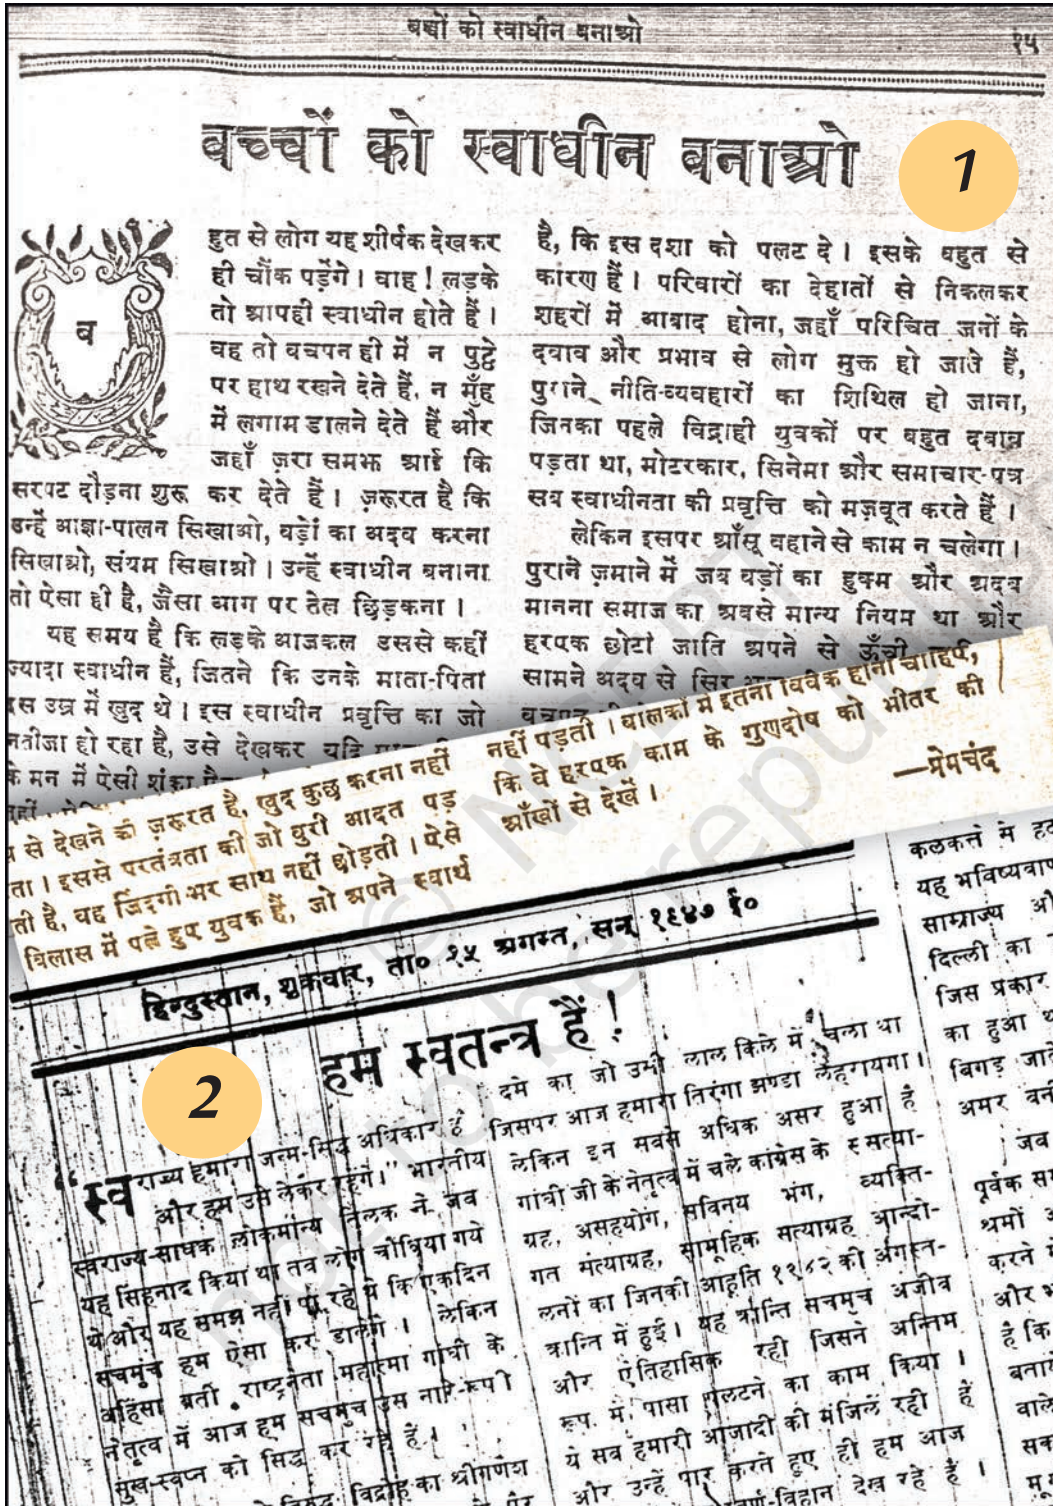 बच्चों को स्वाधीन बनाओ
१५
बच्चों को स्वाधीन बनाओ
1
व
हुत से लोग यह शीर्षक देखकर
ही चौंक पड़ेंगे। वाह! लड़के
तो आपही स्वाधीन होते हैं।
वह तो बचपन ही में न पुट्ठे
पर हाथ रखने देते हैं, न मुँह
में लगाम डालने देते हैं और
जहाँ ज़रा समझ आई कि
सरपट दौड़ना शुरू कर देते हैं। ज़रूरत है कि
उन्हें आज्ञा-पालन सिखाओ, बड़ों का अदब करना
सिखाओ, संयम सिखाओ। उन्हें स्वाधीन बनाना
तो ऐसा ही है, जैसा आग पर तेल छिड़कना।
यह समय है कि लड़के आजकल उससे कहीं
ज्यादा स्वाधीन हैं, जितने कि उनके माता-पिता
इस उम्र में खुद थे। इस स्वाधीन प्रवृत्ति का जो
नतीजा हो रहा है, उसे देखकर यदि
के मन में ऐसी शंका
है, कि इस दशा को पलट दे। इसके बहुत से
कारण हैं। परिवारों का देहातों से निकलकर
शहरों में आबाद होना, जहाँ परिचित जनों के
दबाव और प्रभाव से लोग मुक्त हो जाते हैं,
पुराने नीति-व्यवहारों का शिथिल हो जाना,
जिनका पहले विद्राही युवकों पर बहुत दबाव
पड़ता था, मोटरकार, सिनेमा और समाचार-पत्र
सब स्वाधीनता की प्रवृत्ति को मज़बूत करते हैं।
लेकिन इसपर आँसू बहाने से काम न चलेगा।
पुराने ज़माने में जब बड़ों का हुक्म और अदब
मानना समाज का सबसे मान्य नियम था और
हरएक छोटी जाति अपने से ऊँची
सामने अदब से सिर
से देखने की ज़रूरत है, खुद कुछ करना नहीं
ता। इससे परतंत्रता की जो बुरी आदत पड़
ती है, वह जिंदगी भर साथ नहीं छोड़ती। ऐसे
विलास में पले हुए युवक हैं, जो अपने स्वार्थ
नहीं पड़ती। बालकों में इतना विवेक होना चाहिए,
कि वे हरएक काम के गुणदोष को भीतर की
आँखों से देखें।
—प्रेमचंद
हिन्दुस्तान, शुक्रवार, ता० १५ अगस्त, सन् १९४७ ई०
हम स्वतन्त्र हैं!
2
“स्वराज्य हमारा जन्म-सिद्ध अधिकार है
और हम उसे लेकर रहेंगे।” भारतीय
स्वराज्य-साधक लोकमान्य तिलक ने जब
यह सिंहनाद किया था तब लोग चौंधिया गये
थे और यह समझ नहीं पा रहे थे कि एकदिन
सचमुच हम ऐसा कर डालेंगे। लेकिन
अहिंसा व्रती राष्ट्रनेता महात्मा गांधी के
नेतृत्व में आज हम सचमुच उस नारे-रूपी
सुख-स्वप्न को सिद्ध कर रहे हैं।
विद्रोह का श्रीगणेश
दमे का जो उसी लाल किले में चला था
जिसपर आज हमारा तिरंगा झण्डा लहरायगा।
लेकिन इन सबसे अधिक असर हुआ है
गांधी जी के नेतृत्व में चले कांग्रेस के सत्या-
ग्रह, असहयोग, सविनय भंग, व्यक्ति-
गत सत्याग्रह, सामूहिक सत्याग्रह आन्दो-
लनों का जिनकी आहूति १९४२ की अगस्त-
क्रान्ति में हुई। यह क्रान्ति सचमुच अजीब
और ऐतिहासिक रही जिसने अन्तिम
रूप में पासा पलटने का काम किया।
ये सब हमारी आजादी की मंजिलें रही हैं
और उन्हें पार करते हुए ही हम आज
स्वर्ण-विहान देख रहे हैं।
कलकत्ते मे
यह भविष्यवाण
साम्राज्य
दिल्ली का
जिस प्रकार
का हुआ
बिगड़ जाते
अमर
जब
पूर्वक
श्रमों
करने
और
है कि
बताय
वाले
© NCERT
not to be republished